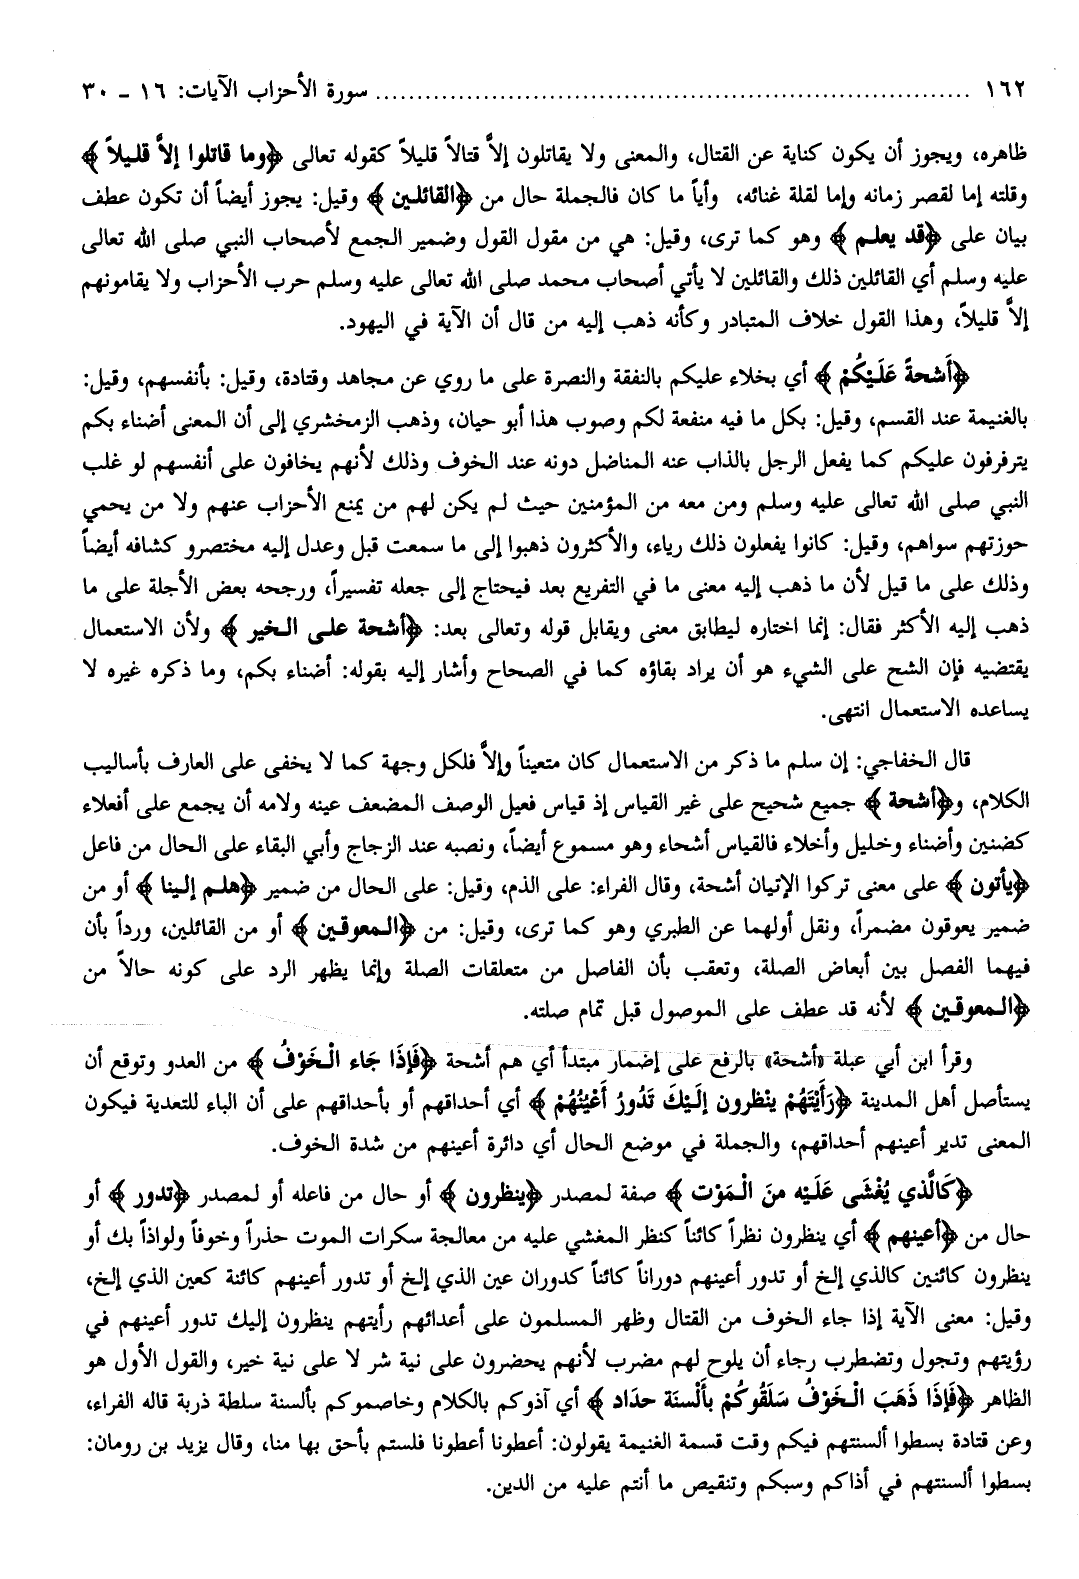 ١٦٢ ........................................................................ سورة الأحزاب الآيات: ١٦ ـ ٣٠
ظاهره، ويجوز أن يكون كناية عن القتال، والمعنى ولا يقاتلون إلاَّ قتالاً قليلاً كقوله تعالى ﴿وما قاتلوا إلاَّ قليلاً﴾
وقلته إما لقصر زمانه وإما لقلة غنائه، وأياً ما كان فالجملة حال من ﴿القائلين﴾ وقيل: يجوز أيضاً أن تكون عطف
بيان على ﴿قد يعلم﴾ وهو كما ترى، وقيل: هي من مقول القول وضمير الجمع لأصحاب النبي صلى الله تعالى
عليه وسلم أي القائلين ذلك والقائلين لا يأتي أصحاب محمد صلى الله تعالى عليه وسلم حرب الأحزاب ولا يقامونهم
إلاَّ قليلاً، وهذا القول خلاف المتبادر وكأنه ذهب إليه من قال أن الآية في اليهود.
﴿أَشحةً عَلَيْكُمْ﴾ أي بخلاء عليكم بالنفقة والنصرة على ما روي عن مجاهد وقتادة، وقيل: بأنفسهم، وقيل:
بالغنيمة عند القسم، وقيل: بكل ما فيه منفعة لكم وصوب هذا أبو حيان، وذهب الزمخشري إلى أن المعنى أضناء بكم
يترفرفون عليكم كما يفعل الرجل بالذاب عنه المناضل دونه عند الخوف وذلك لأنهم يخافون على أنفسهم لو غلب
النبي صلى الله تعالى عليه وسلم ومن معه من المؤمنين حيث لم يكن لهم من يمنع الأحزاب عنهم ولا من يحمي
حوزتهم سواهم، وقيل: كانوا يفعلون ذلك رياء، والأكثرون ذهبوا إلى ما سمعت قبل وعدل إليه مختصرو كشافه أيضاً
وذلك على ما قيل لأن ما ذهب إليه معنى ما في التفريع بعد فيحتاج إلى جعله تفسيراً، ورجحه بعض الأجلة على ما
ذهب إليه الأكثر فقال: إنما اختاره ليطابق معنى ويقابل قوله وتعالى بعد: ﴿أشحة على الخير﴾ ولأن الاستعمال
يقتضيه فإن الشح على الشيء هو أن يراد بقاؤه كما في الصحاح وأشار إليه بقوله: أضناء بكم، وما ذكره غيره لا
يساعده الاستعمال انتهى.
قال الخفاجي: إن سلم ما ذكر من الاستعمال كان متعيناً وإلاَّ فلكل وجهة كما لا يخفى على العارف بأساليب
الكلام، و﴿أشحة﴾ جميع شحيح على غير القياس إذ قياس فعيل الوصف المضعف عينه ولامه أن يجمع على أفعلاء
كضنين وأضناء وخليل وأخلاء فالقياس أشحاء وهو مسموع أيضاً، ونصبه عند الزجاج وأبي البقاء على الحال من فاعل
﴿يأتون﴾ على معنى تركوا الإتيان أشحة، وقال الفراء: على الذم، وقيل: على الحال من ضمير ﴿هلم إلينا﴾ أو من
ضمير يعوقون مضمراً، ونقل أولهما عن الطبري وهو كما ترى، وقيل: من ﴿المعوقين﴾ أو من القائلين، ورداً بأن
فيهما الفصل بين أبعاض الصلة، وتعقب بأن الفاصل من متعلقات الصلة وإنما يظهر الرد على كونه حالاً من
﴿المعوقين﴾ لأنه قد عطف على الموصول قبل تمام صلته.
وقرأ ابن أبي عبلة «أشحة» بالرفع على إضمار مبتدأ أي هم أشحة ﴿فَإذَا جَاء الْخَوْفُ﴾ من العدو وتوقع أن
يستأصل أهل المدينة ﴿رَأَيْتَهُمْ يَنْظرون إلَيْكَ تَدُورُ أَعْيُنُهُمْ﴾ أي أحداقهم أو بأحداقهم على أن الباء للتعدية فيكون
المعنى تدير أعينهم أحداقهم، والجملة في موضع الحال أي دائرة أعينهم من شدة الخوف.
﴿كَالَّذي يُغْشَى عَلَيْه منَ الْمَوْت﴾ صفة لمصدر ﴿ينظرون﴾ أو حال من فاعله أو لمصدر ﴿تدور﴾ أو
حال من ﴿أعينهم﴾ أي ينظرون نظراً كائناً كنظر المغشي عليه من معالجة سكرات الموت حذراً وخوفاً ولواذاً بك أو
ينظرون كائنين كالذي إلخ أو تدور أعينهم دوراناً كائناً كدوران عين الذي إلخ أو تدور أعينهم كائنة كعين الذي إلخ،
وقيل: معنى الآية إذا جاء الخوف من القتال وظهر المسلمون على أعدائهم رأيتهم ينظرون إليك تدور أعينهم في
رؤيتهم وتجول وتضطرب رجاء أن يلوح لهم مضرب لأنهم يحضرون على نية شر لا على نية خير، والقول الأول هو
الظاهر ﴿فَإذَا ذَهَبَ الْخَوْفُ سَلَقُوكُمْ بأَلْسنَة حدَاد﴾ أي آذوكم بالكلام وخاصموكم بألسنة سلطة ذربة قاله الفراء،
وعن قتادة بسطوا ألسنتهم فيكم وقت قسمة الغنيمة يقولون: أعطونا أعطونا فلستم بأحق بها منا، وقال يزيد بن رومان:
بسطوا ألسنتهم في أذاكم وسبكم وتنقيص ما أنتم عليه من الدين.